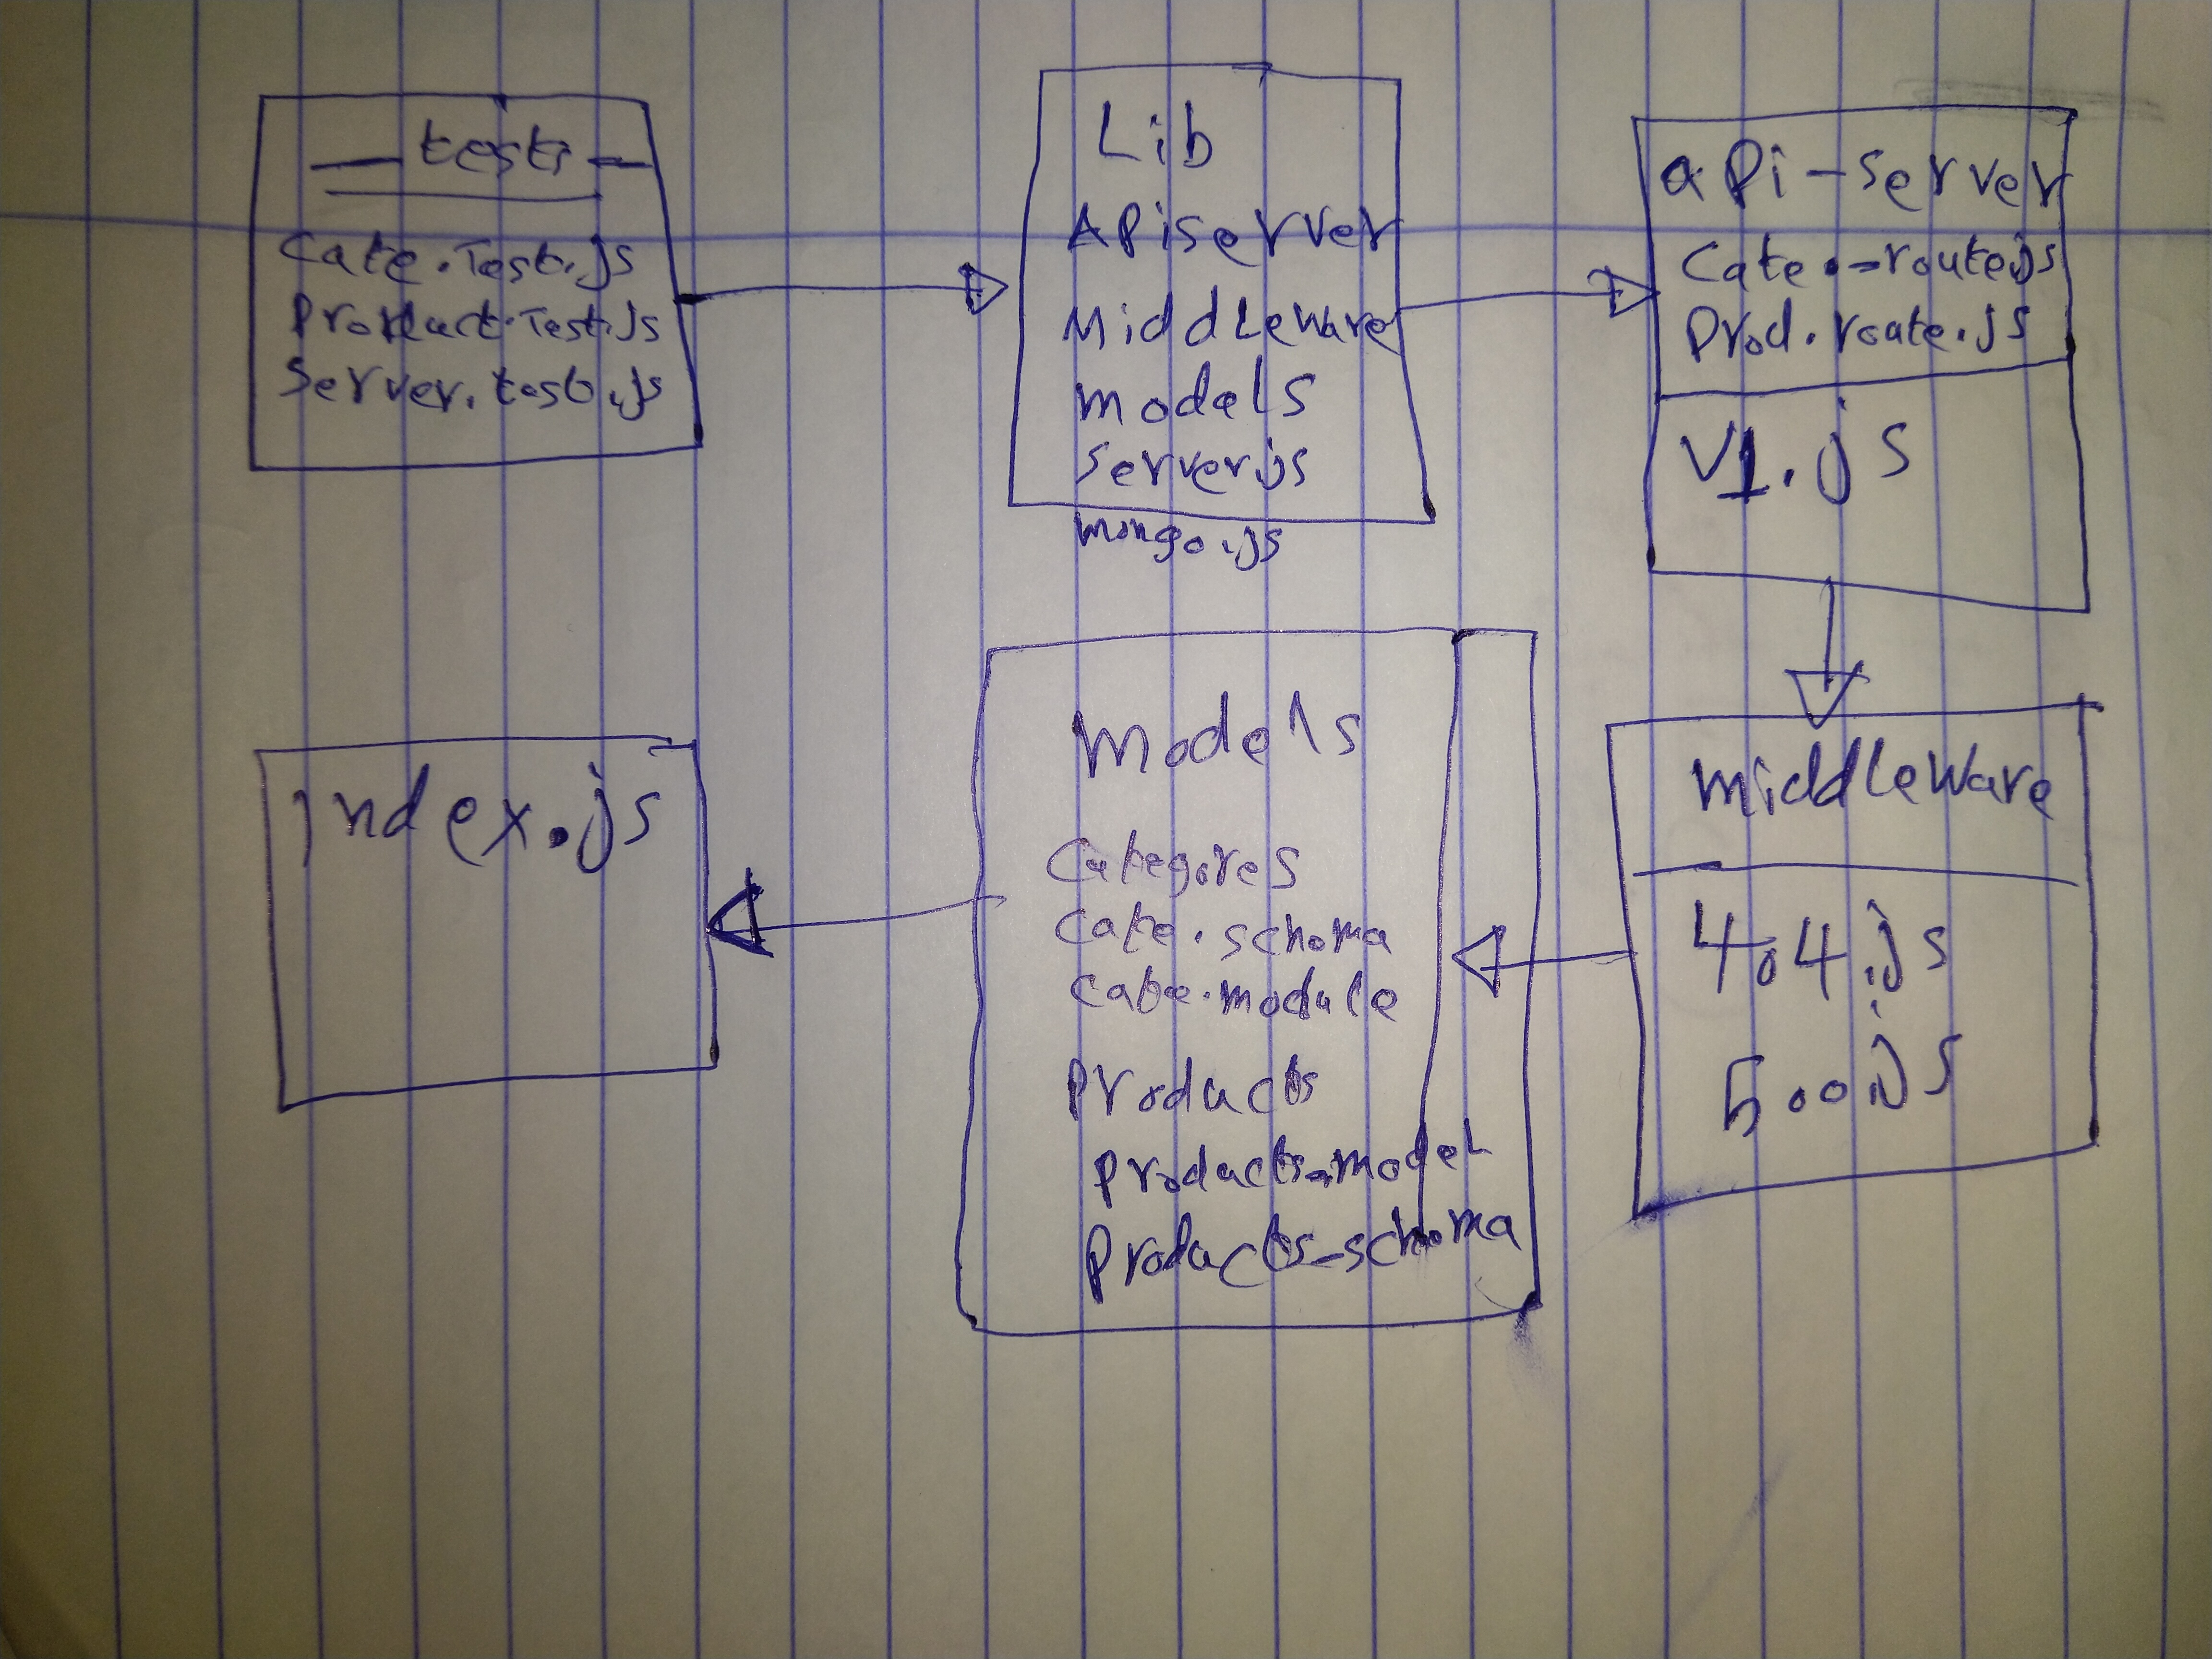 — test —
Cate.Test.js
Product.Test.js
Server.test.js
Lib
ApiServer
MiddLeware
models
server.js
mongo.js
api-server
Cate.-route.js
Prod.route.js
V1.js
middLeware
404.js
500.js
models
Categores
Cate.schema
cate.module
products
products-model
products-schema
Index.js